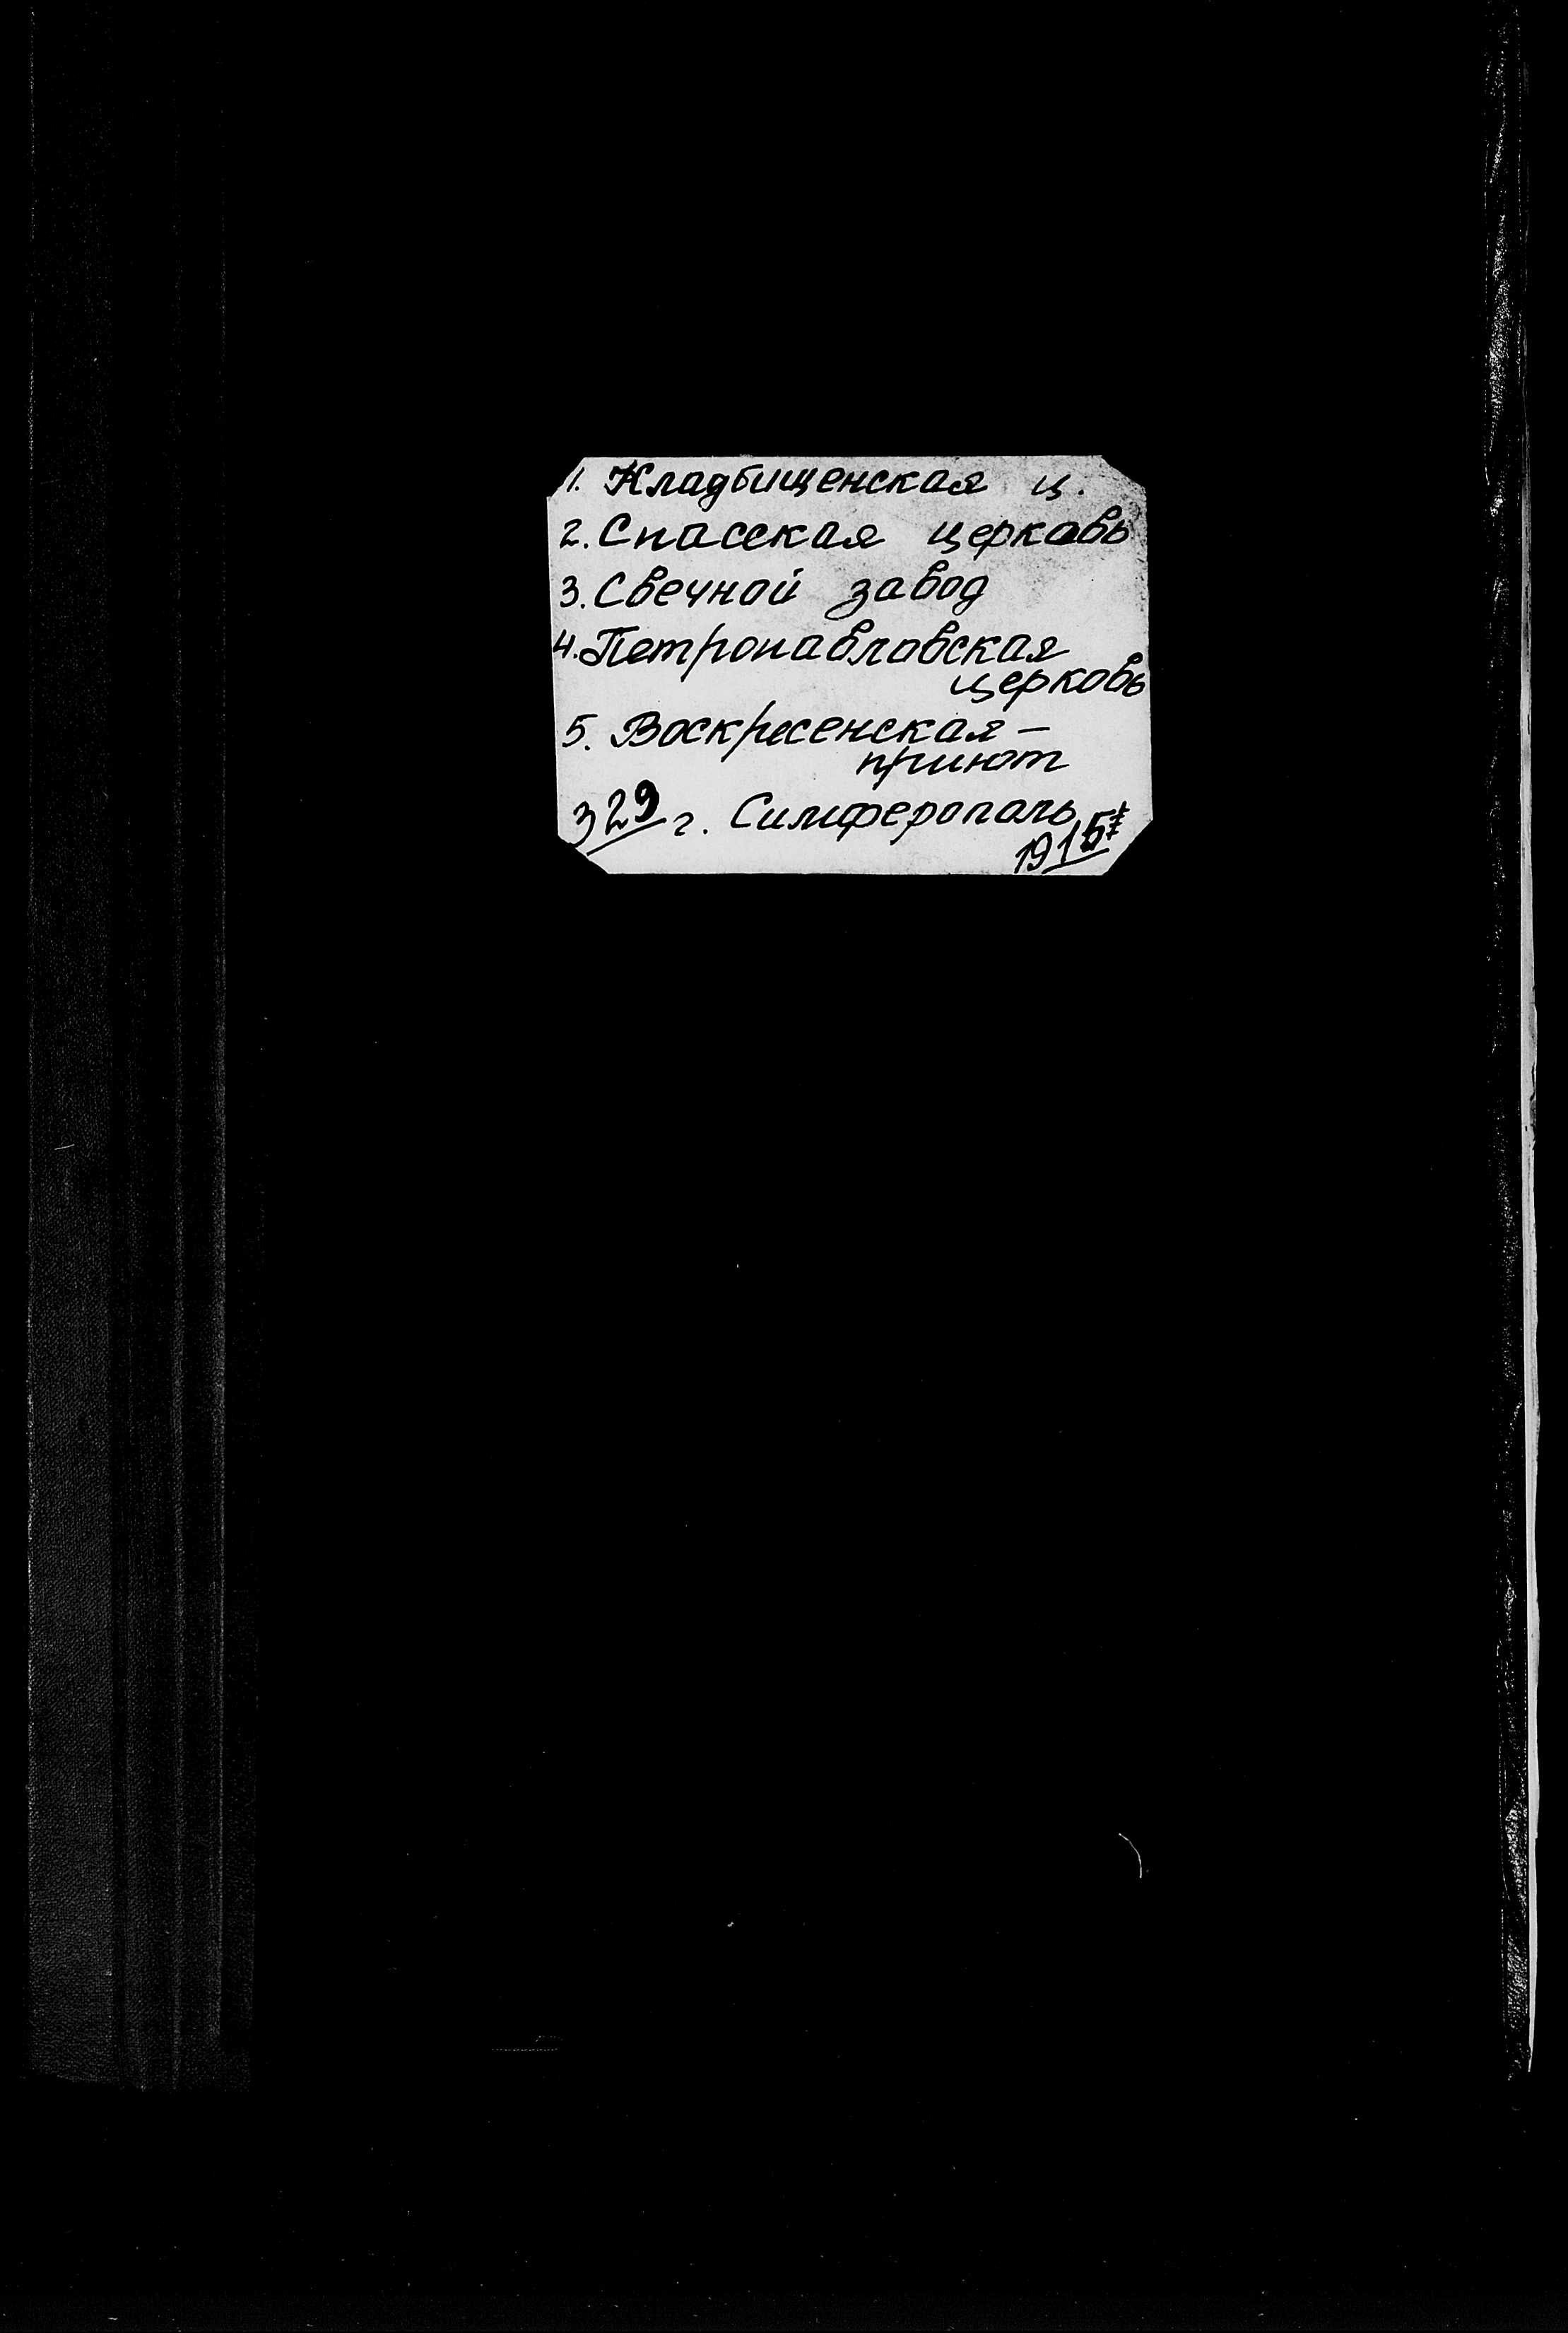 1. Кладбищенская ц.
2. Спасская церковь
3. Свечной завод
4. Петропавловская
церковь
5. Воскресенская –
приют
329 г. Симферополь
1915